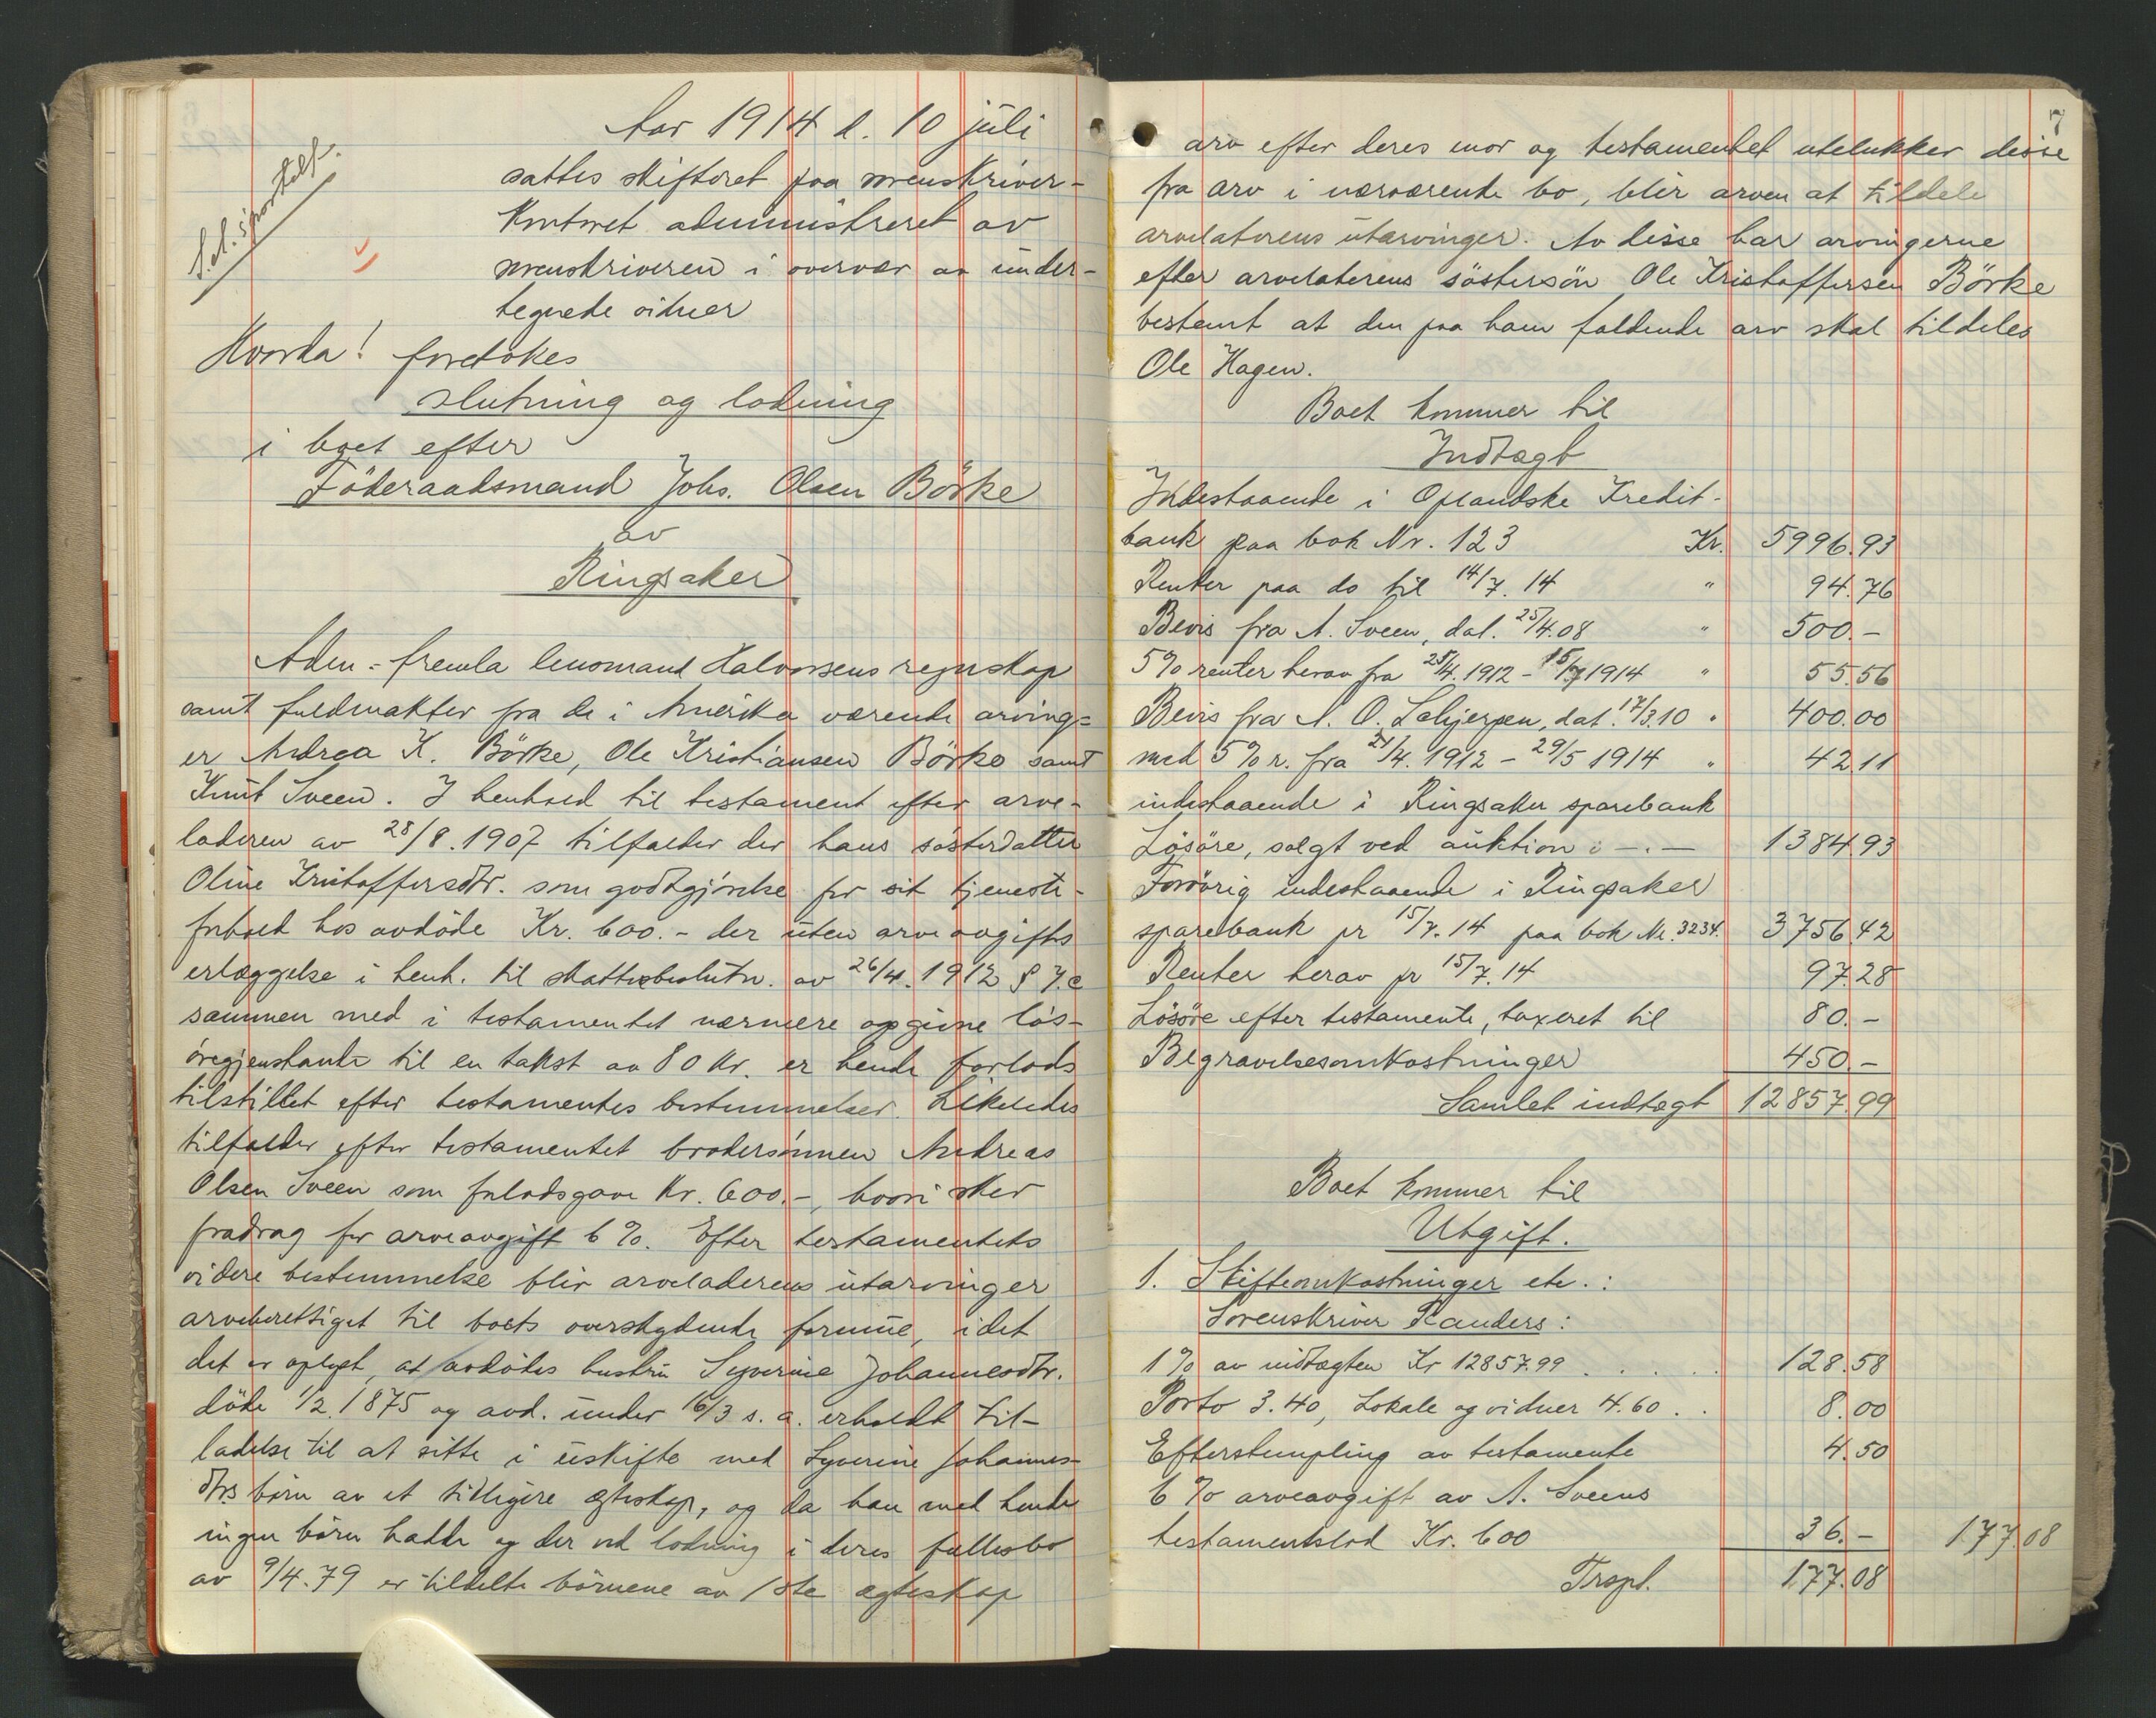 Aar 1914 d. 10 juli
sattes skifteret paa sorenskriver-
kontoret administreret av
sorenskriveren i overvær av under-
tegnede vidner
S.d. sportelf.
Hvorda! foretokes
slutning og lodning
i boet efter
Föderaadsmand Johs. Olsen Börke
av
Ringsaker
Adm. fremla lensmand Halvorsens regnskap
samt fuldmakter fra de i Amerika værende arving-
er Andrea K. Börke, Ole Kristiansen Börke samt
Knut Sveen. I henhold til testament efter arve-
laderen av 28/8.1907 tilfalder der hans søsterdatter
Oline Kristoffersdtr. som godtgjørelse for sit tjeneste-
forhold hos avdöde Kr. 600.- der uten arveavgifts
erlæggelse i henh. til skattebeslutn. av 26/4.1912 § 7.c
sammen med i testamentet nærmere opgivne løs-
øregjenstande til en takst av 80 kr. er hende forlods
tilstillet efter testamentes bestemmelser. Likeledes
tilfalder efter testamentet brodersønnen Andreas
Olsen Sveen som forlodsgave Kr. 600.-, hvori sker
fradrag for arveavgift 6 %. Efter testamentets
videre bestemmelse blir arveladerens utarvinger
arveberettiget til boets overskydende formue, idet
det er oplyst, at avdödes hustru Syverine Johannesdtr.
döde 1/2.1875 og avd. under 16/3 s. a. erholdt til-
ladelse til at sitte i uskifte med Syverine Johannes-
dtrs börn av et tidligere ægteskap, og da han med hende
ingen börn hadde og der ved lodning i deres fællesbo
av 9/4.79 er tildelte börnene av 1ste ægteskap
7
arv efter deres mor og testamentet utelukker disse
fra arv i nærværende bo, blir arven at tildele
arvelaterens utarvinger. Av disse har arvingerne
efter arvelaterens söstersön Ole Kristoffersen Börke
bestemt at den paa ham faldende arv skal tildeles
Ole Hagen.
Boet kommer til
Indtægt
Indestaaende i Oplandske Kredit-
bank paa bok Nr. 123 Kr. 5996.93
Renter paa do til 14/7.14 " 94.76
Bevis fra A. Sveen, dat. 25/4.08 " 500.-
5 % renter herav fra 25/4.1912 - 15/7 1914 " 55.56
Bevis fra A. O. Schjerpen, dat. 17/3.10 " 400.00
med 5 % r. fra 21/4.1912 - 29/5 1914 " 42.11
indestaaende i Ringsaker sparebank
Lösöre, solgt ved auktion : -.- 1384.93
Forövrig indestaaende i Ringsaker
sparebank pr 15/7.14 paa bok Nr. 3234. 3756.42
Renter herav pr 15/7.14 97.28
Lösöre efter testamente, taxeret til 80.-
Begravelsesomkostninger 450.-
Samlet indtægt 12857.99
Boet kommer til
Utgift.
1. Skifteomkostninger etc.:
Sorenskriver Randers:
1 % av indtægten Kr 12857.99 . . . . . 128.58
Porto 3.40, Lokale og vidner 4.60 . . 8.00
Efterstempling av testamente 4.50
6 % arveavgift av A. Sveens
testamentslod Kr. 600 36.- 177.08
Trspt. 177.08